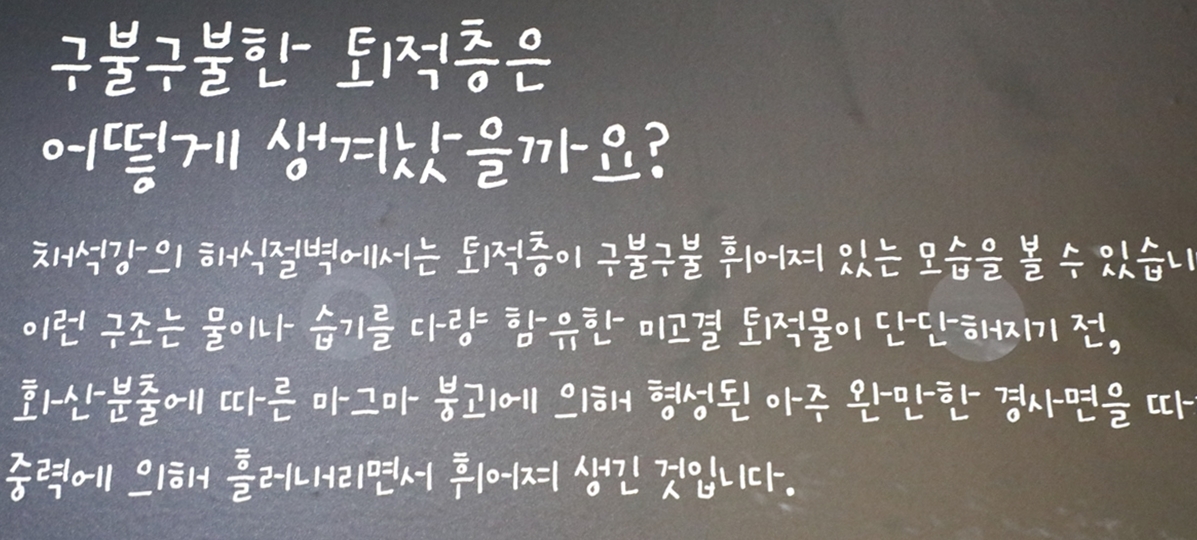 구불구불한 퇴적층은
어떻게 생겨났을까요?
채석강의 해식절벽에서는 퇴적층이 구불구불 휘어져 있는 모습을 볼 수 있습니
이런 구조는 물이나 습기를 다량 함유한 미고결 퇴적물이 단단해지기 전,
화산분출에 따른 마그마 붕괴에 의해 형성된 아주 완만한 경사면을 따
중력에 의해 흘러내리면서 휘어져 생긴 것입니다.